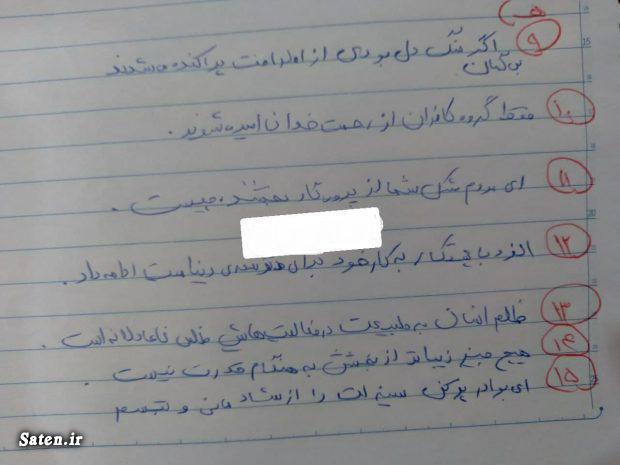 ۹ اگر سنگ دل بودی از اطرافت پراکنده می شدند
بی گمان
۱۰ فقط گروه کافران از رحمت خدا نا امید می شوند .
۱۱ ای مردم شکل شما از پروردگار بخشنده چیست .
۱۲ به کار خود برای ادامه داد .
۱۳ ظلم انسان به طبیعت در فعالیت هایش ظلمی ناعادلانه است .
۱۴ هیچ چیز زیباتر از بخشش به هنگام قدرت نیست .
۱۵ ای برادر پر کن سینه ات را از شادمانی و تبسم
Saten.ir